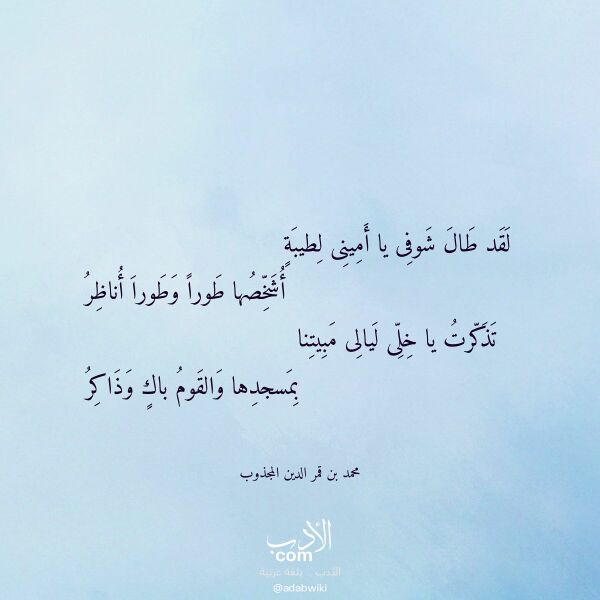 لَقَد طَالَ شَوفِى يا أَمِينِى لِطيبَةٍ
أُشَخِّصُها طَوراً وَطَوراً أُناظِرُ
تَذَكّرتُ يا خِلِّى لَيالِى مَبِيتِنا
بِمَسجدِها وَالقَومُ باكٍ وَذَاكِرُ
محمد بن قمر الدين المجذوب
الأدب
com
الأدب .. بلغة عربية
@adabwiki